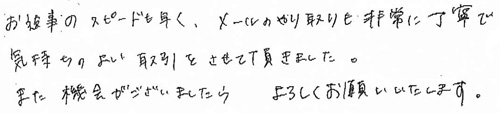 お返事のスピードも早く、メールのやり取りも非常に丁寧で
気持ちのよい取引をさせて頂きました。
また機会がございましたら　よろしくお願いいたします。